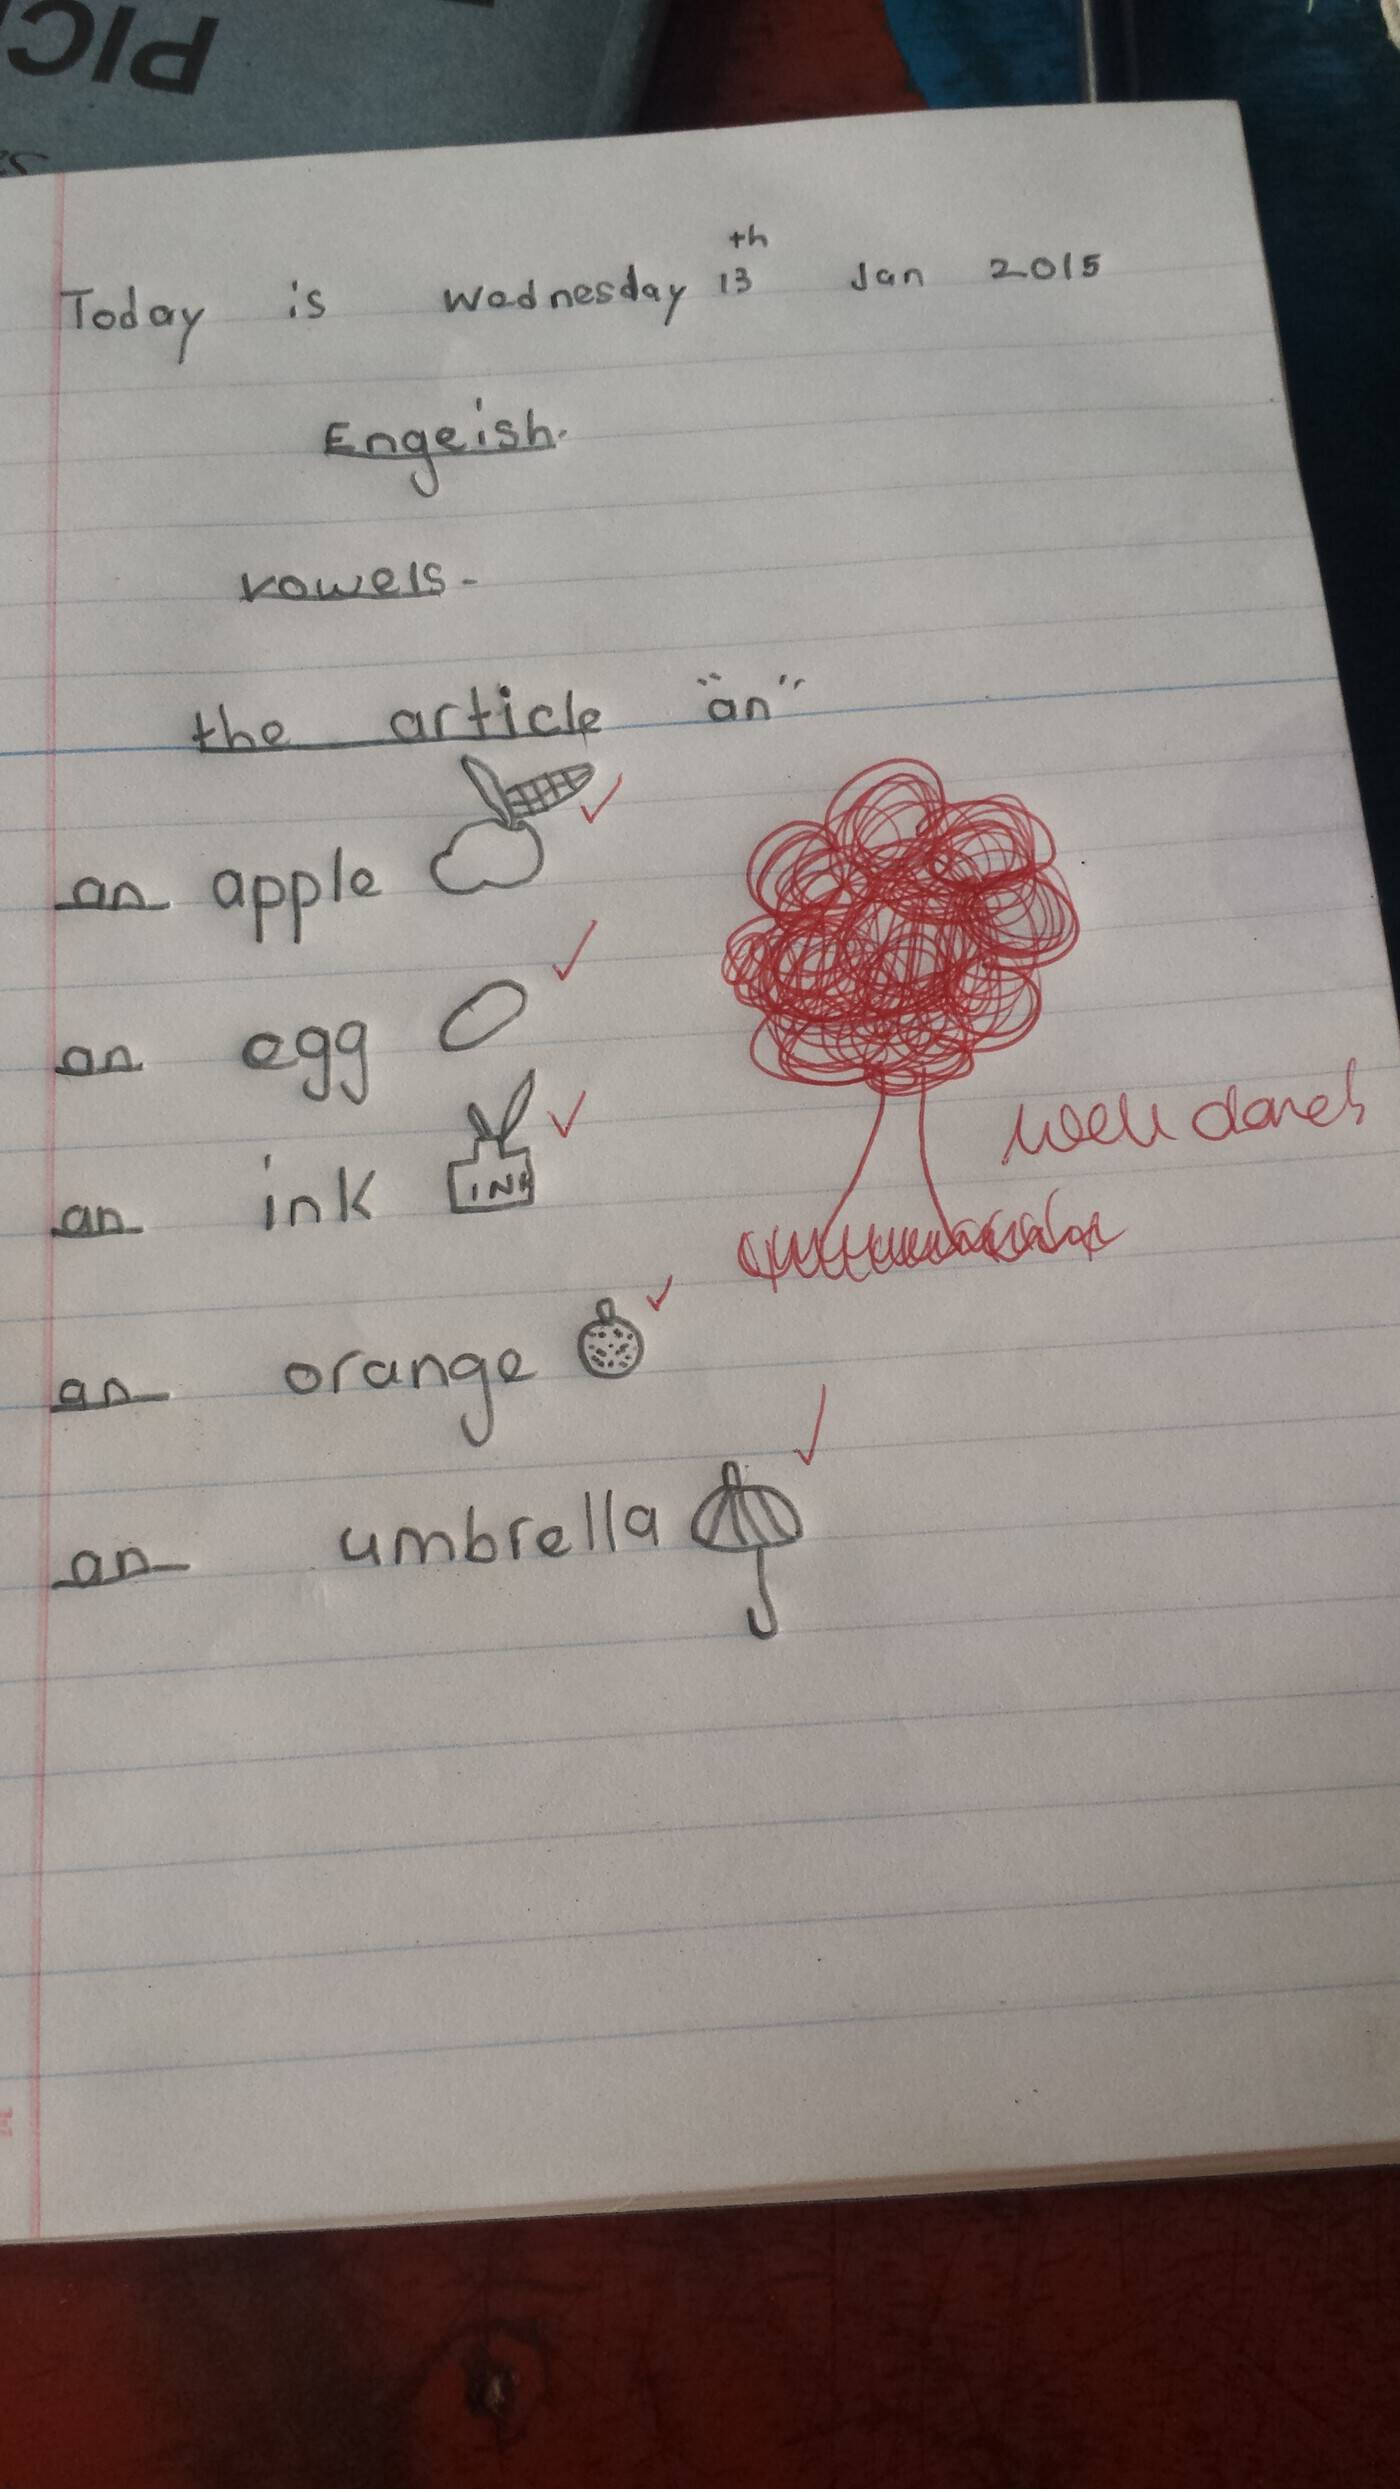 PIC
Today is Wednesday 13th Jan 2015
Engeish.
vowels.
the article "an"
an apple
an egg
an ink
INK
an orange
an umbrella
Well done!